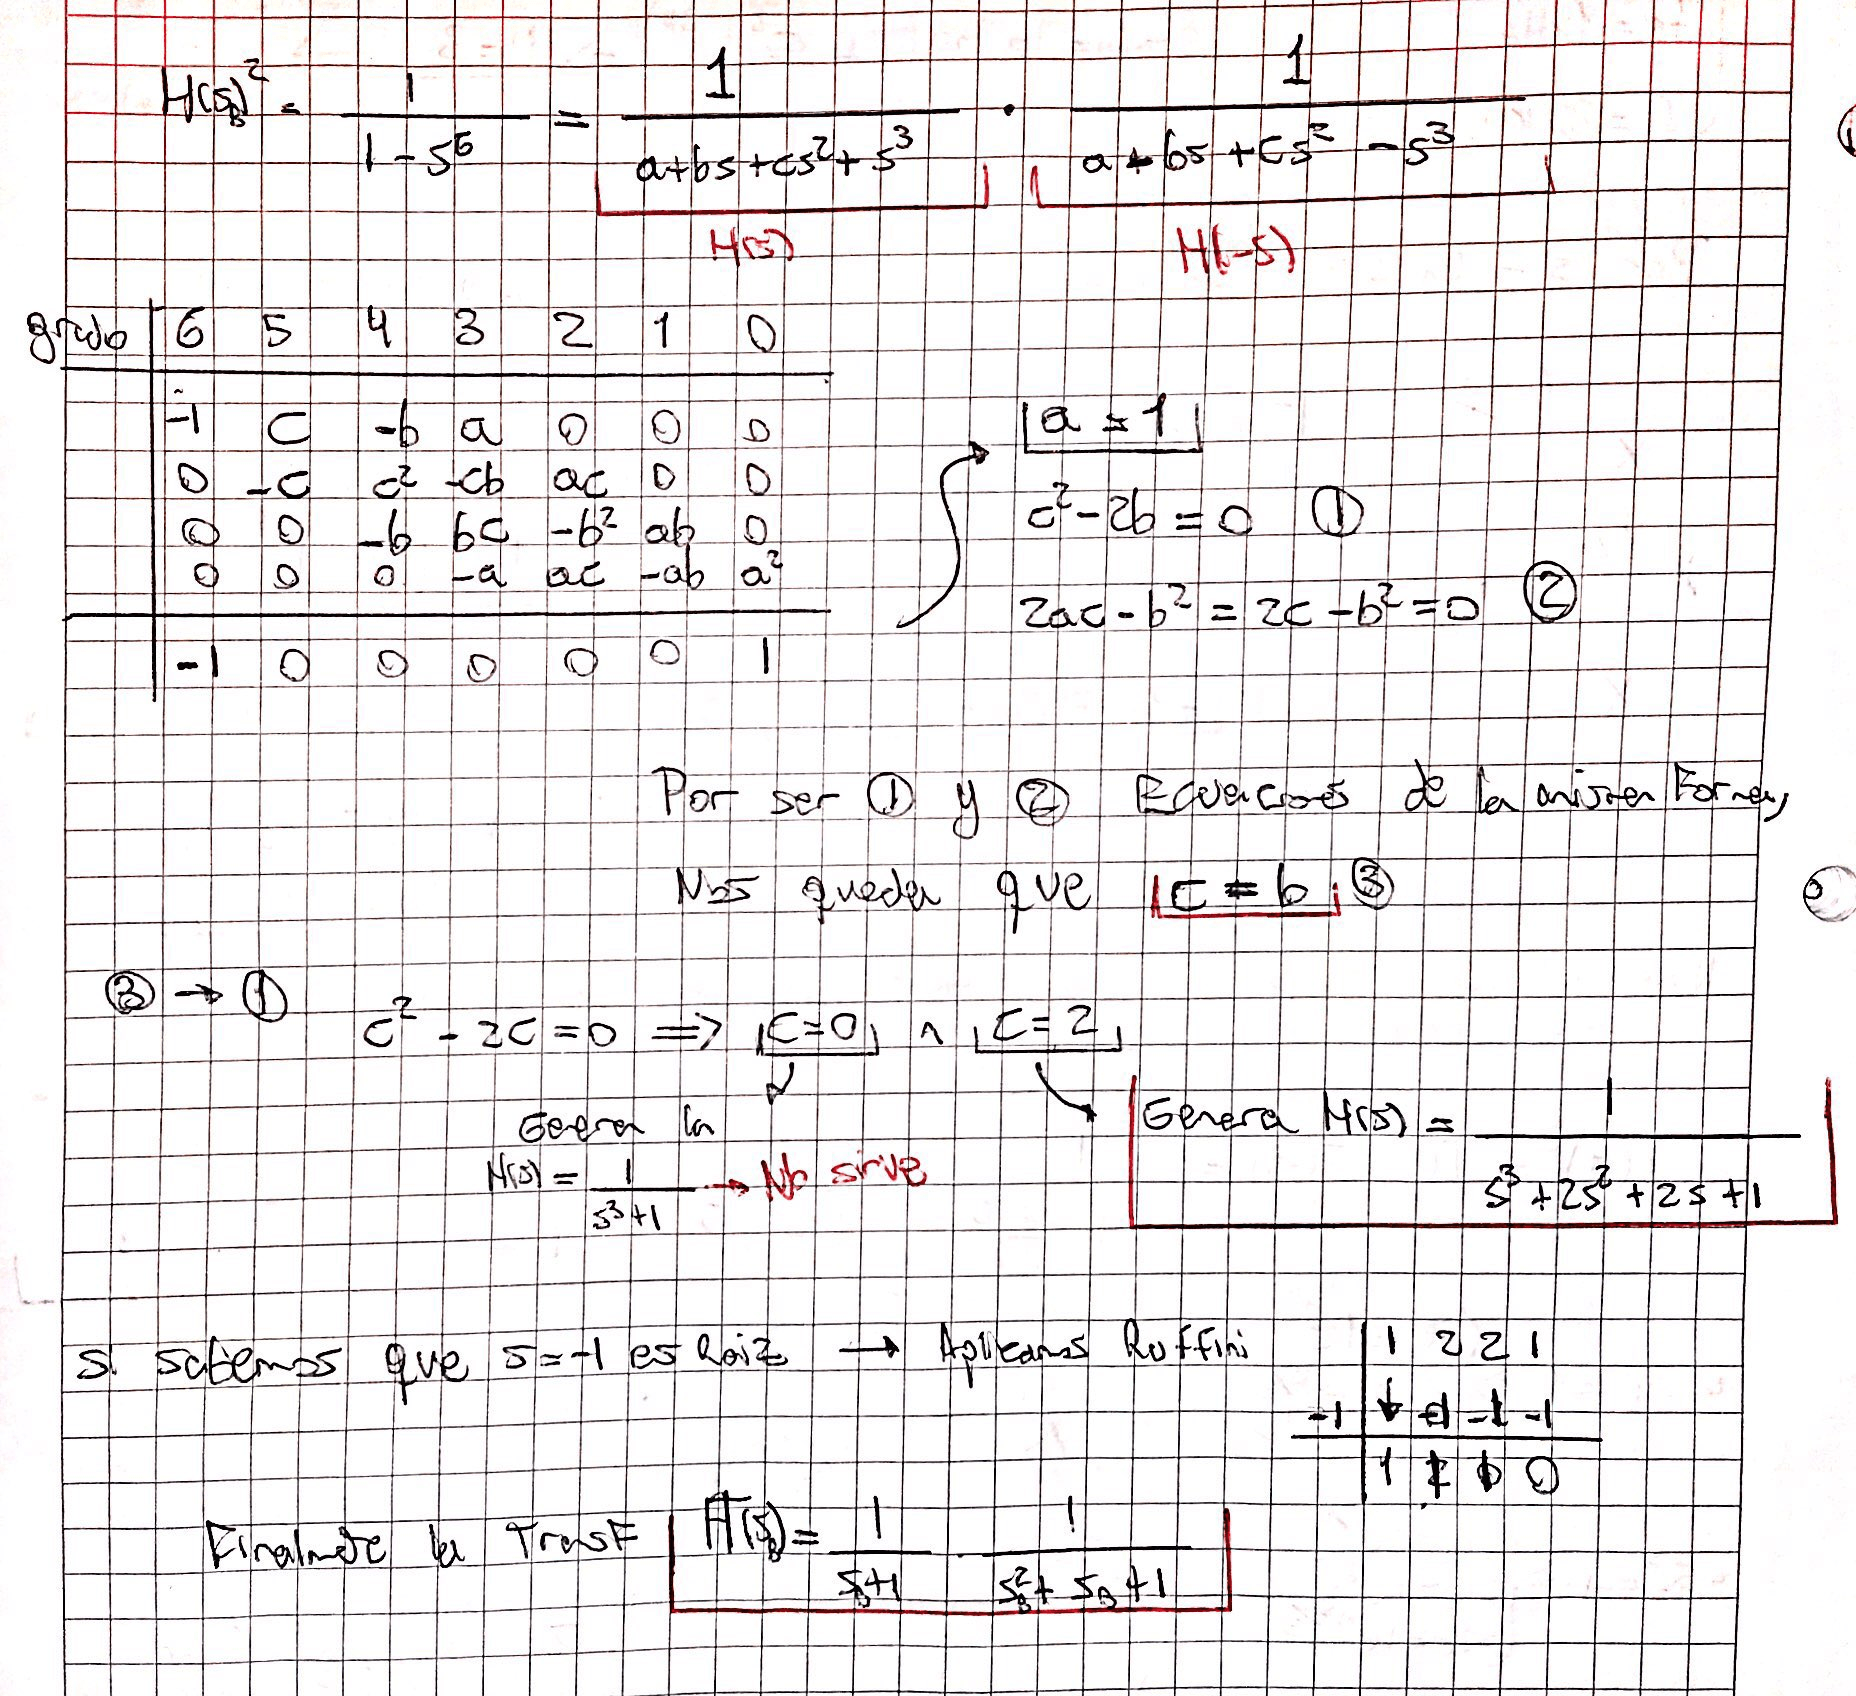 H(s_B)² = 1/(1 - s⁶) = 1/(a+bs+cs²+s³) · 1/(a-bs+cs²-s³)
H(s) H(-s)
grado | 6 5 4 3 2 1 0
-1 c -b a 0 0 0
0 -c c² -cb ac 0 0
0 0 -b bc -b² ab 0
0 0 0 -a ac -ab a²
-1 0 0 0 0 0 1
a = 1
c² - 2b = 0 ①
2ac - b² = 2c - b² = 0 ②
Por ser ① y ② Ecuaciones de la misma Forma,
Nos queda que c = b ③
③ → ① c² - 2c = 0 ⇒ c=0 ∧ c=2
Genera la
H(s) = 1/(s³+1) → No sirve
Genera H(s) = 1/(s³+2s²+2s+1)
Si sabemos que s=-1 es Raiz → Aplicamos Ruffini
1 2 2 1
-1 ↓ -1 -1 -1
1 1 1 0
Finalmente la Transf H(s_B) = 1/(s_B+1) 1/(s_B²+s_B+1)